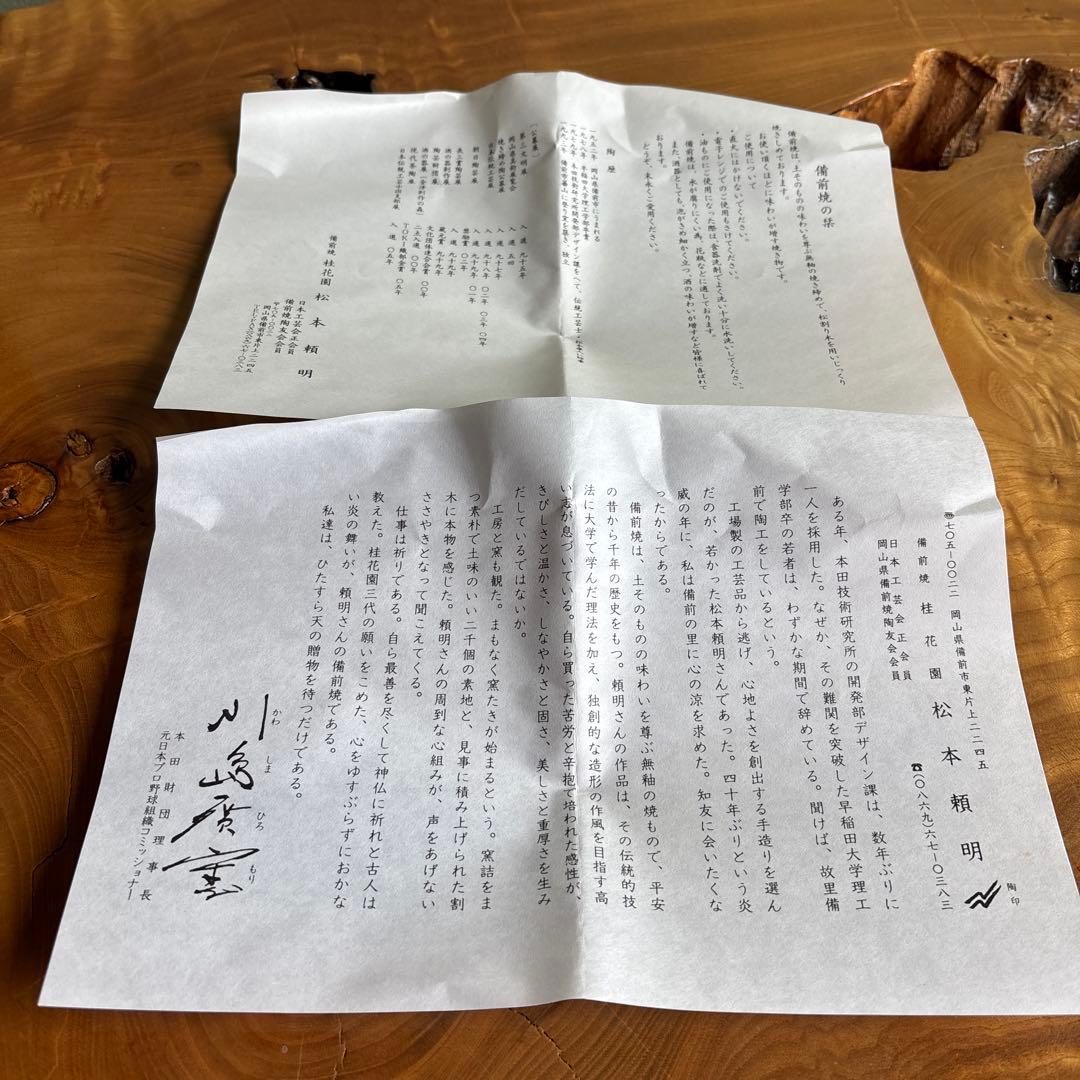 備前焼の栞
備前焼は、土そのものの味わいを尊ぶ無釉の焼き締めで、松割り木を用いじっくり
焼きしめております。
お使い頂くほどに味わいが増す焼き物です。
ご使用について
・直火にはかけないでください。
・電子レンジでのご使用もさけてください。
・油ものにご使用になった際は、食器洗剤でよく洗い十分に水洗いしてください。
備前焼は、水が腐りにくい為、花瓶などに適しております。
また、酒器としても、泡がきめ細かく立つ、酒の味わいが増すなど皆様に喜ばれて
おります。
どうぞ、末永くご愛用ください。
陶 歴
一九五二年 岡山県備前市にうまれる
一九七八年 早稲田大学理工学部卒業
一九七九年 本田技術研究所開発部デザイン課をへて、伝統工芸士
一九九二年 備前市蕃山に登り窯を築き、独立
〔公募展〕
第三文明展 入選 九十五年
岡山県美術展覧会 入選 五回
焼き締め陶公募展 入選 九十七年
日本伝統工芸展 入選 九十八年 〇二年 〇三年 〇四年
朝日陶芸展 入選 九十九年 〇一年
奨励賞 〇二年
表三賞陶芸展 入選 九十九年
酒の器制作展 蔵元賞 九十九年
陶芸財団展 文化団体連合会賞 〇〇年
酒の器展「会津制作の森」 二点入選 〇〇年
現代茶陶展 TOKI織部金賞 〇五年
日本伝統工芸中国支部展 入選 〇五年
備前焼 桂花園 松本頼明
日本工芸会正会員
備前焼陶友会会員
〒705-0022
岡山県備前市東片上二二四五
TEL(0869)67-0383
〠七〇五-〇〇二二 岡山県備前市東片上二二四五
備前焼 桂花園 松本頼明 陶印
☎(〇八六九)六七-〇三八三
日本工芸会正会員
岡山県備前焼陶友会会員
ある年、本田技術研究所の開発部デザイン課は、数年ぶりに
一人を採用した。なぜか、その難関を突破した早稲田大学理工
学部卒の若者は、わずかな期間で辞めている。聞けば、故里備
前で陶工をしているという。
工場製の工芸品から逃げ、心地よさを創出する手造りを選ん
だのが、若かった松本頼明さんであった。四十年ぶりという炎
威の年に、私は備前の里に心の涼を求めた。知友に会いたくな
ったからである。
備前焼は、土そのものの味わいを尊ぶ無釉の焼もので、平安
の昔から千年の歴史をもつ。頼明さんの作品は、その伝統的技
法に大学で学んだ理法を加え、独創的な造形の作風を目指す高
い志が息づいている。自ら買った苦労と辛抱で培われた感性が、
きびしさと温かさ、しなやかさと固さ、美しさと重厚さを生み
だしているではないか。
工房と窯も観た。まもなく窯たきが始まるという。窯詰をま
つ素朴で土味のいい二千個の素地と、見事に積み上げられた割
木に本物を感じた。頼明さんの周到な心組みが、声をあげない
ささやきとなって聞こえてくる。
仕事は祈りである。自ら最善を尽くして神仏に祈れと古人は
教えた。桂花園三代の願いをこめた、心をゆすぶらずにおかな
い炎の舞いが、頼明さんの備前焼である。
私達は、ひたすら天の贈物を待つだけである。
川島廣守
かわ しま ひろ もり
本田財団理事長
元日本プロ野球組織コミッショナー